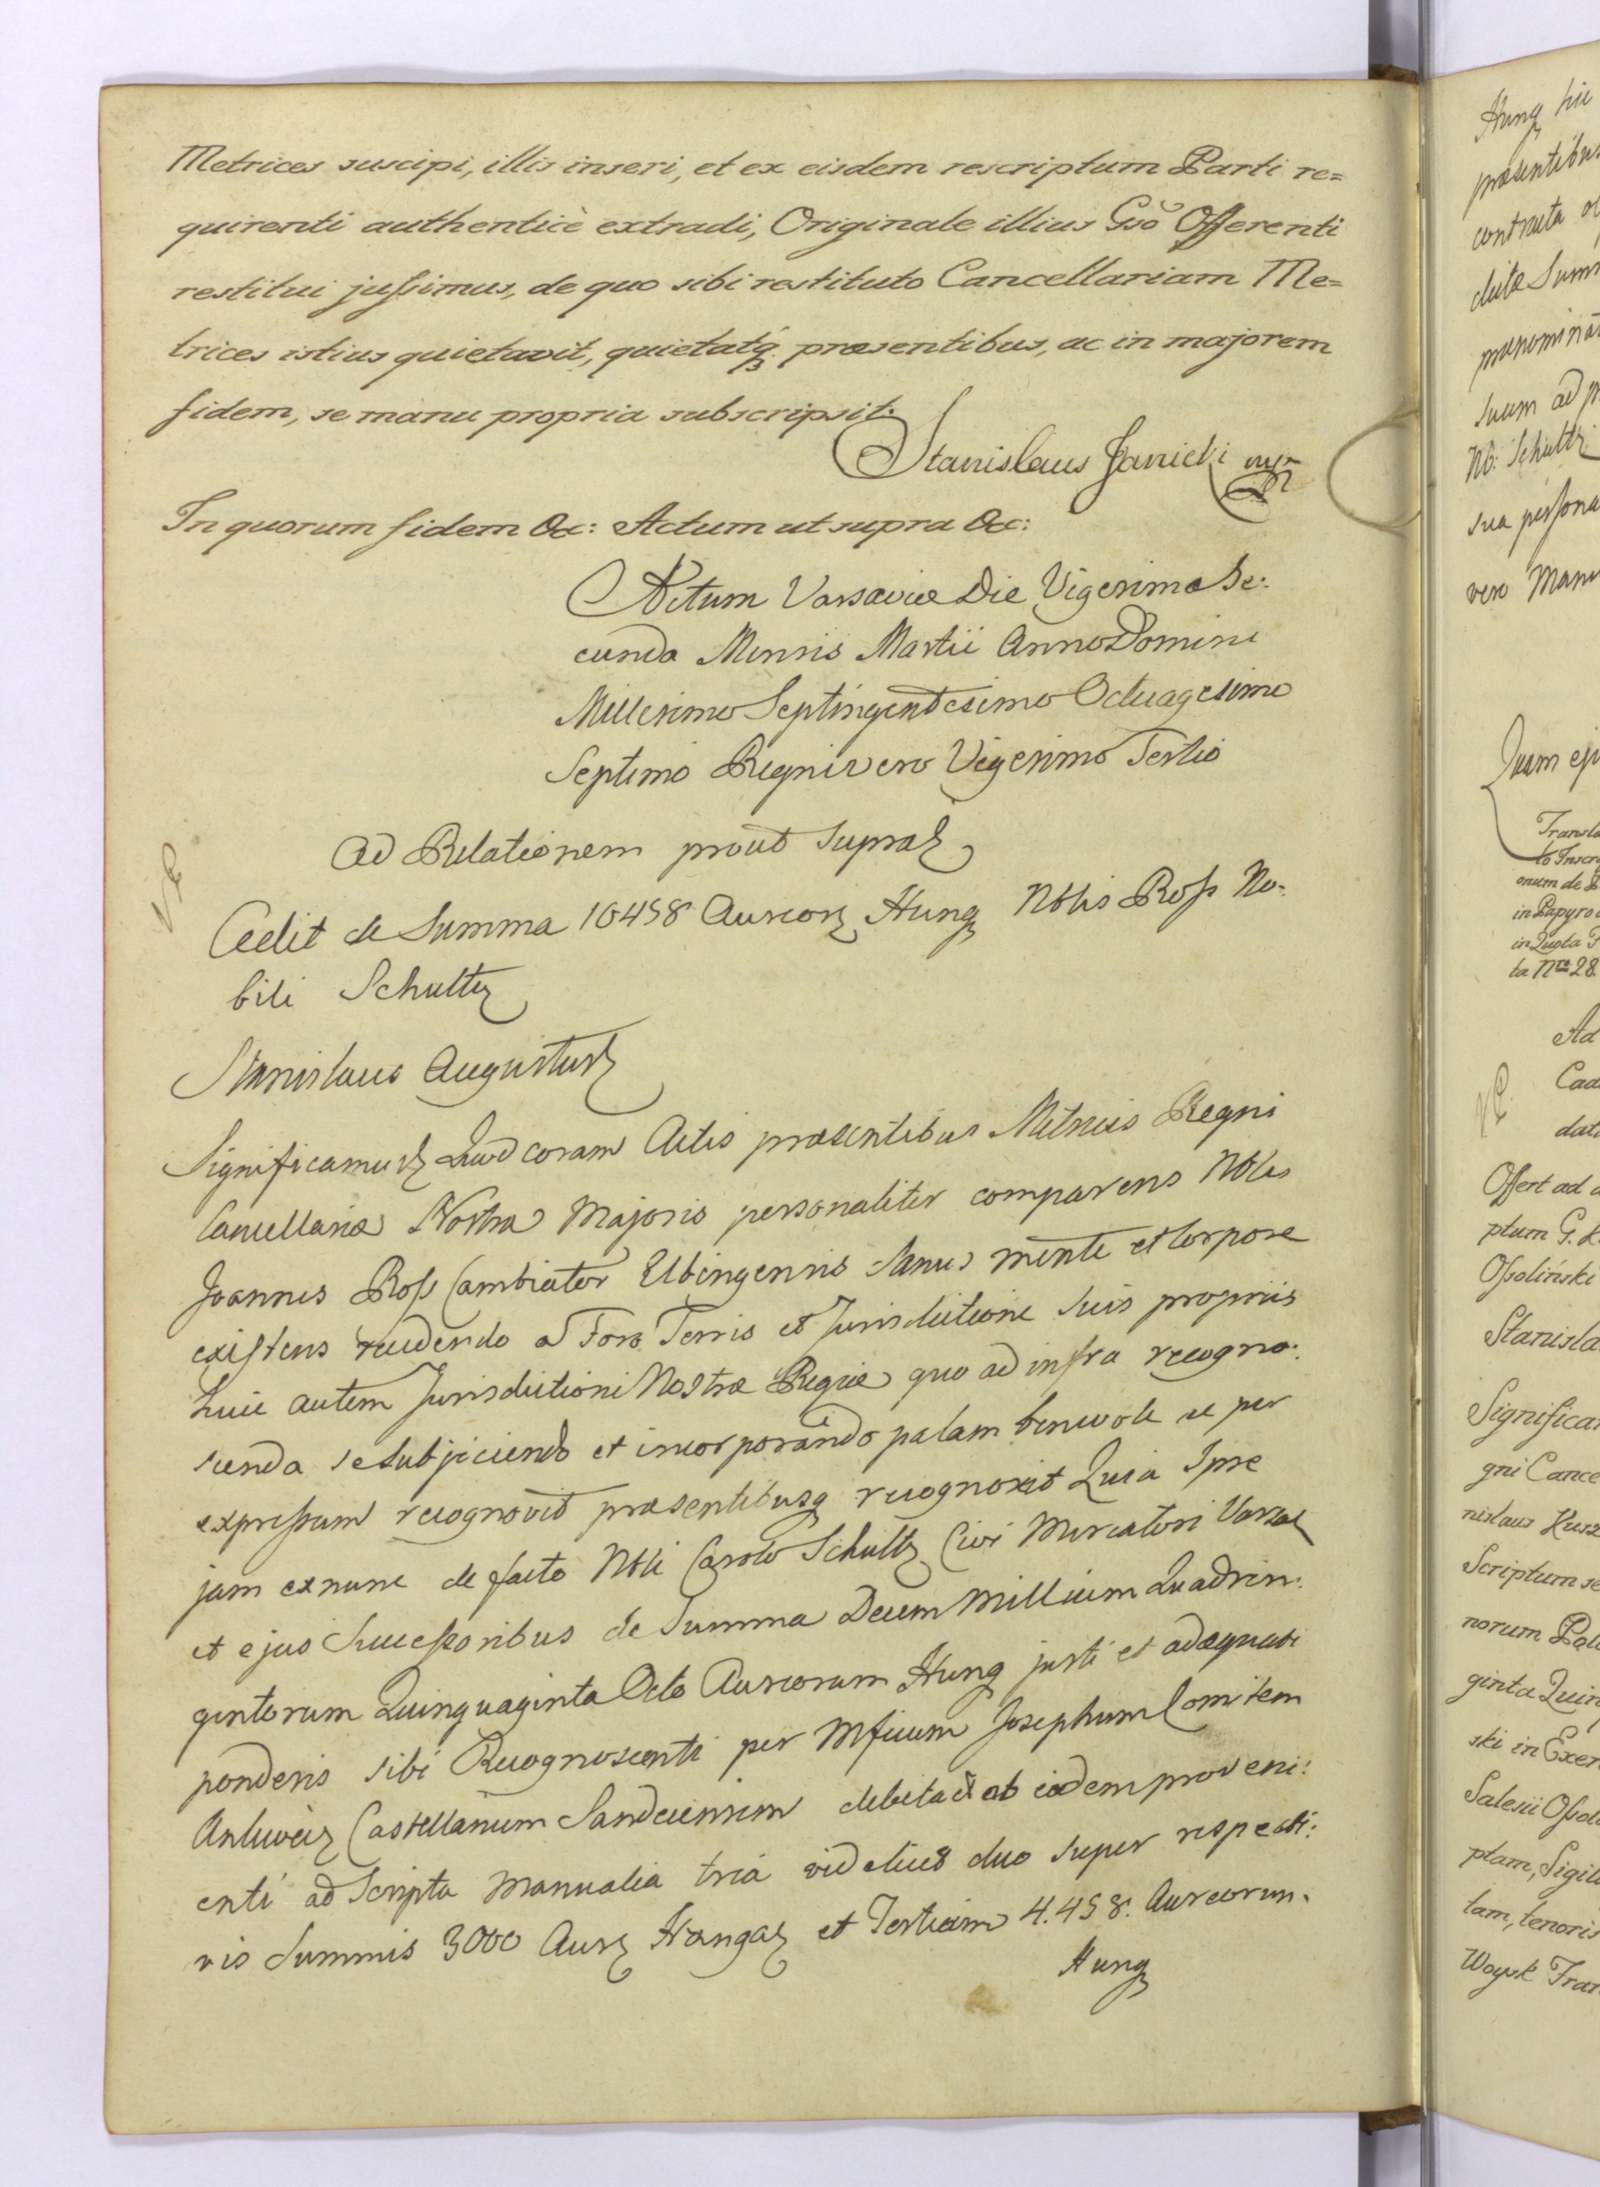 Metrices suscipi, illis inseri, et ex eisdem rescriptum Parti re=
quirenti authenticè extradi, Originale illius Gsō Offerenti
restitui jussimus, de quo sibi restituto Cancellariam Me=
trices istius quietavit, quietatq́ praesentibus, ac in majorem
fidem, se manu propria subscripsit.
Stanislaus Janicki mp
In quorum fidem &c: Actum ut supra &c:
Actum Varsaviae Die Vigesima Se:
cunda Mensis Martii Anno Domini
Millesimo Septingentesimo Octuagesimo
Septimo Regni vero Vigesimo Tertio
Ad Relationem prout Supra
Cedit de Summa 10458 Aureor Hung Nblis Ross No:
bili Schultz
Stanislaus Augustus
Significamus Quod coram Actis praesentibus Metrices Regni
Cancellariae Nostra Majoris personaliter comparens Nblis
Joannes Ross Cambiator Elbingensis Sanus mente et Corpore
existens recedendo a Foro Terris et Jurisdictione suis propriis
huic autem Jurisdictioni Nostrae Regiae quo ad infra recogno:
scenda se Subjiciendo et incorporando palam benevole se per
expressum recognovit praesentibusq recognoscit Quia Ipse
jam ex nunc de facto Nbli Carolo Schultz Civi Mercatori Varsae
et ejus Successoribus de Summa Decem Millium Quadrin:
gentorum Quinquaginta Octo Aureorum Hung justi et adaequati
ponderis sibi Recognoscenti per Mficum Josephum Comitem
Ankwicz Castellanum Sandecensem debita et ab eodem proveni:
enti ad Scripta Manualia tria videlicet duo super respecti:
vis Summis 3000 Aur Hungar et Tertium 4.458. Aureorum.
Hung
Hung hic
praesentibus
contrata
ducta Summ
praenominat
suum ad
Nb: Schultz
sua persona
vero Manu
Quam
Transla
to Inscri
onum de
in Papyro
in Quota
ta Nro 28
Ad
data
Offert ad
ptum G.
Ossoliński
Stanisla
Significam
gni Cance
nislaus Kusz
Scriptum se
norum Pol
ginta Quin
ski in Exer
Salesii Ossol
ptam, Sigil
tam, tenoris
Woysk Fran